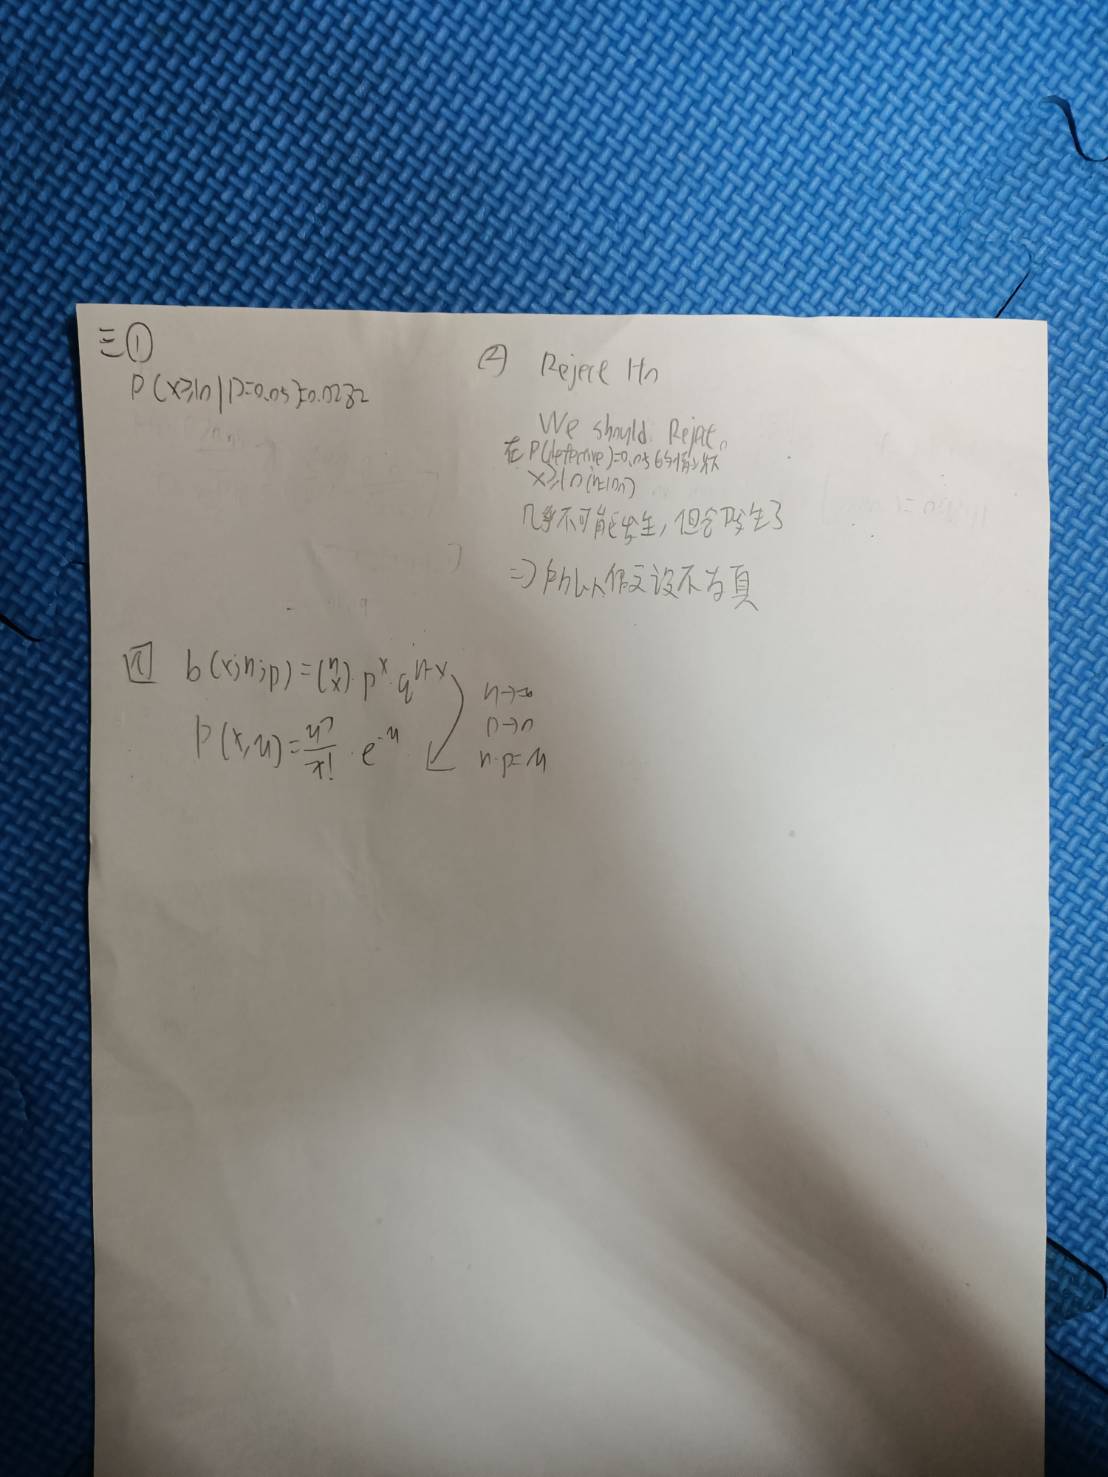 三①
P(x≥10|P=0.05)=0.0282
② Reject H0
We should Reject。
在P(defective)=0.05的情况下
x≥10(n=100)
几乎不可能发生，但今发生了
=>所以假设不为真
四 b(x;n;p)=(n x)·p^x·q^n-x
n→∞
p→0
P(x,μ)=μ^x/x!·e^-μ
n·p=μ